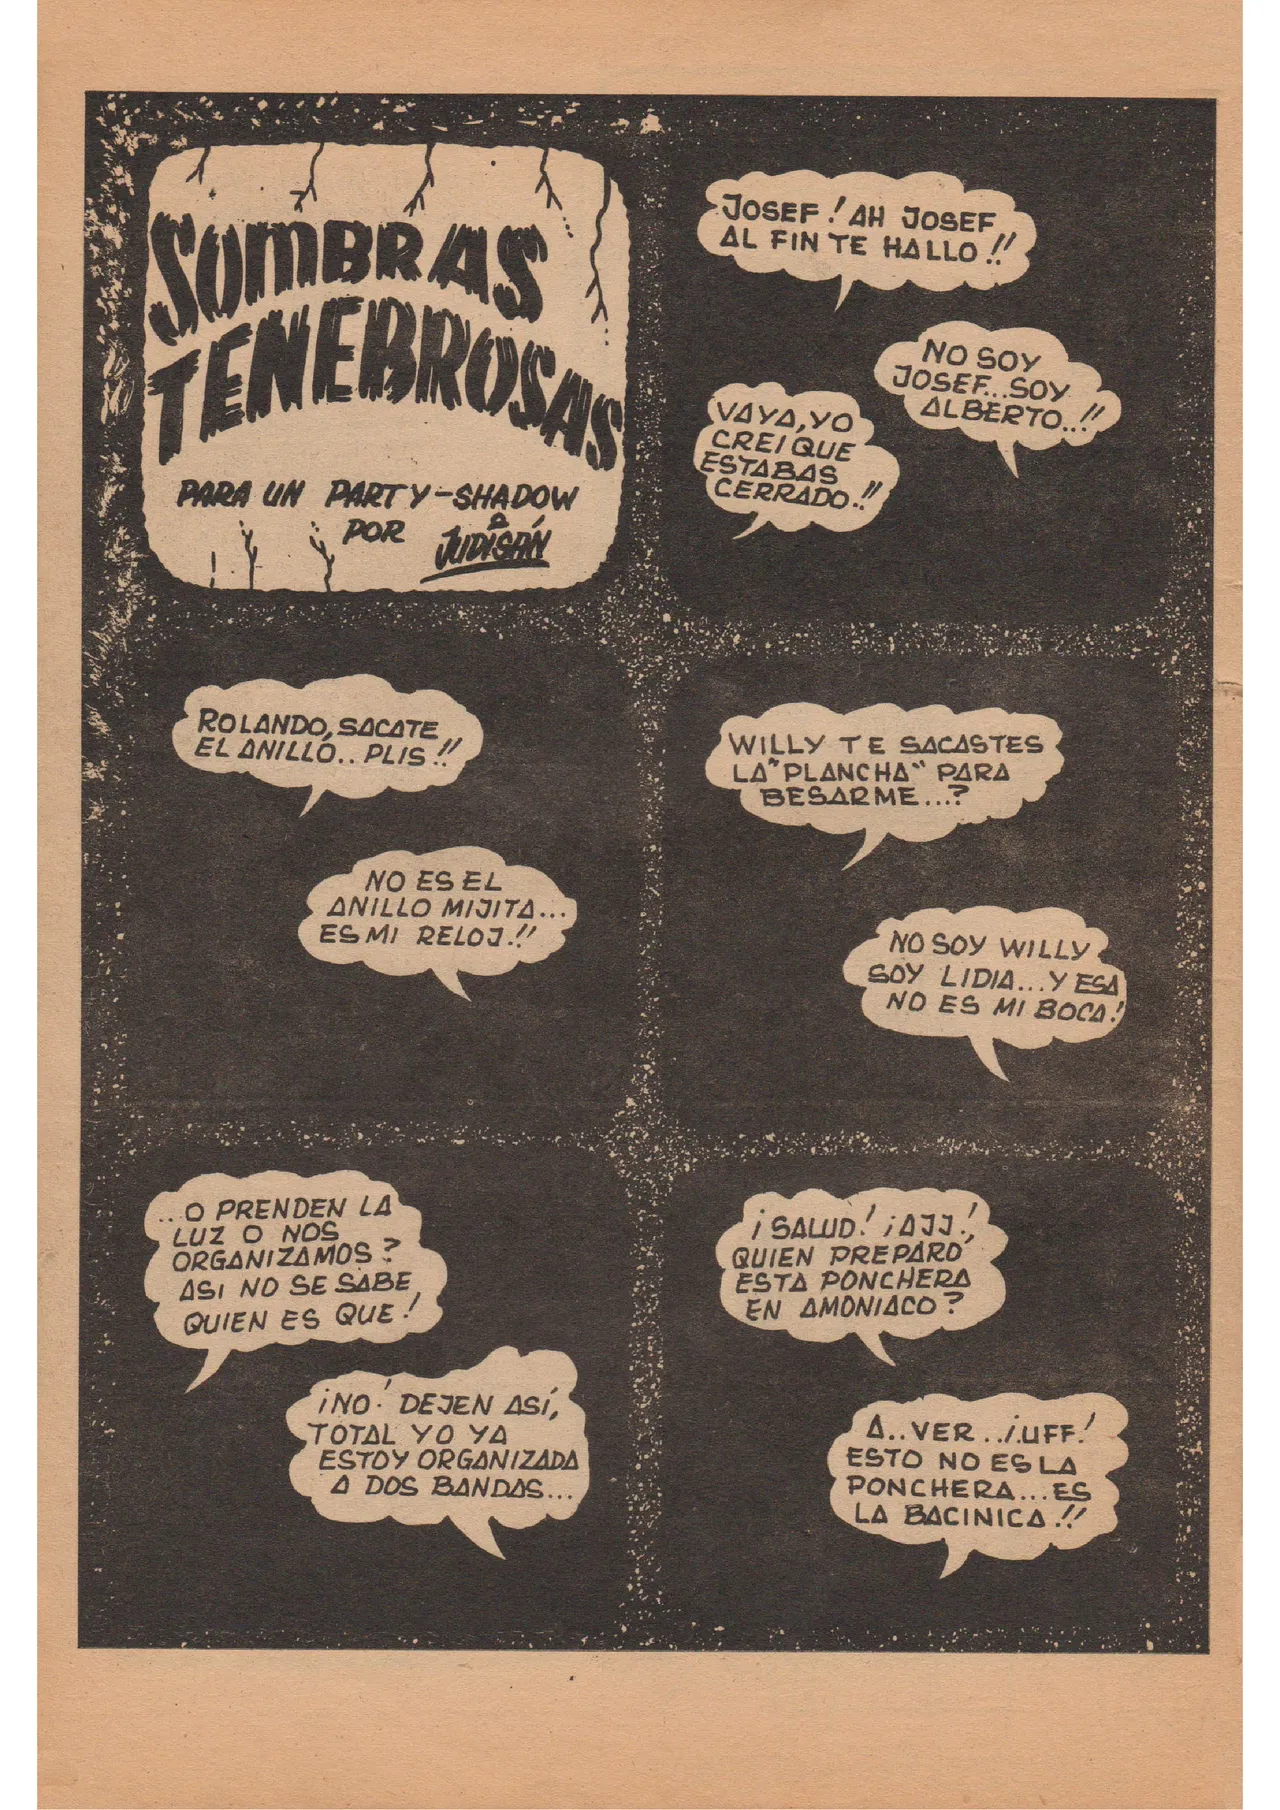 SOMBRAS
TENEBROSAS
PARA UN PARTY-SHADOW
POR JUDISÁN
JOSEF! AH JOSEF
AL FIN TE HALLO!!
NO SOY
JOSEF...SOY
ALBERTO..!!
VAYA, YO
CREI QUE
ESTABAS
CERRADO..!!
ROLANDO, SACATE
EL ANILLO.. PLIS!!
NO ES EL
ANILLO MIJITA...
ES MI RELOJ.!!
WILLY TE SACASTES
LA "PLANCHA" PARA
BESARME...?
NO SOY WILLY
SOY LIDIA...Y ESA
NO ES MI BOCA!
...O PRENDEN LA
LUZ O NOS
ORGANIZAMOS?
ASI NO SE SABE
QUIEN ES QUE!
¡NO! DEJEN ASÍ,
TOTAL YO YA
ESTOY ORGANIZADA
A DOS BANDAS...
¡SALUD! ¡AJJ!,
QUIEN PREPARÓ
ESTA PONCHERA
EN AMONIACO?
A..VER..¡UFF!
ESTO NO ES LA
PONCHERA...ES
LA BACINICA!!